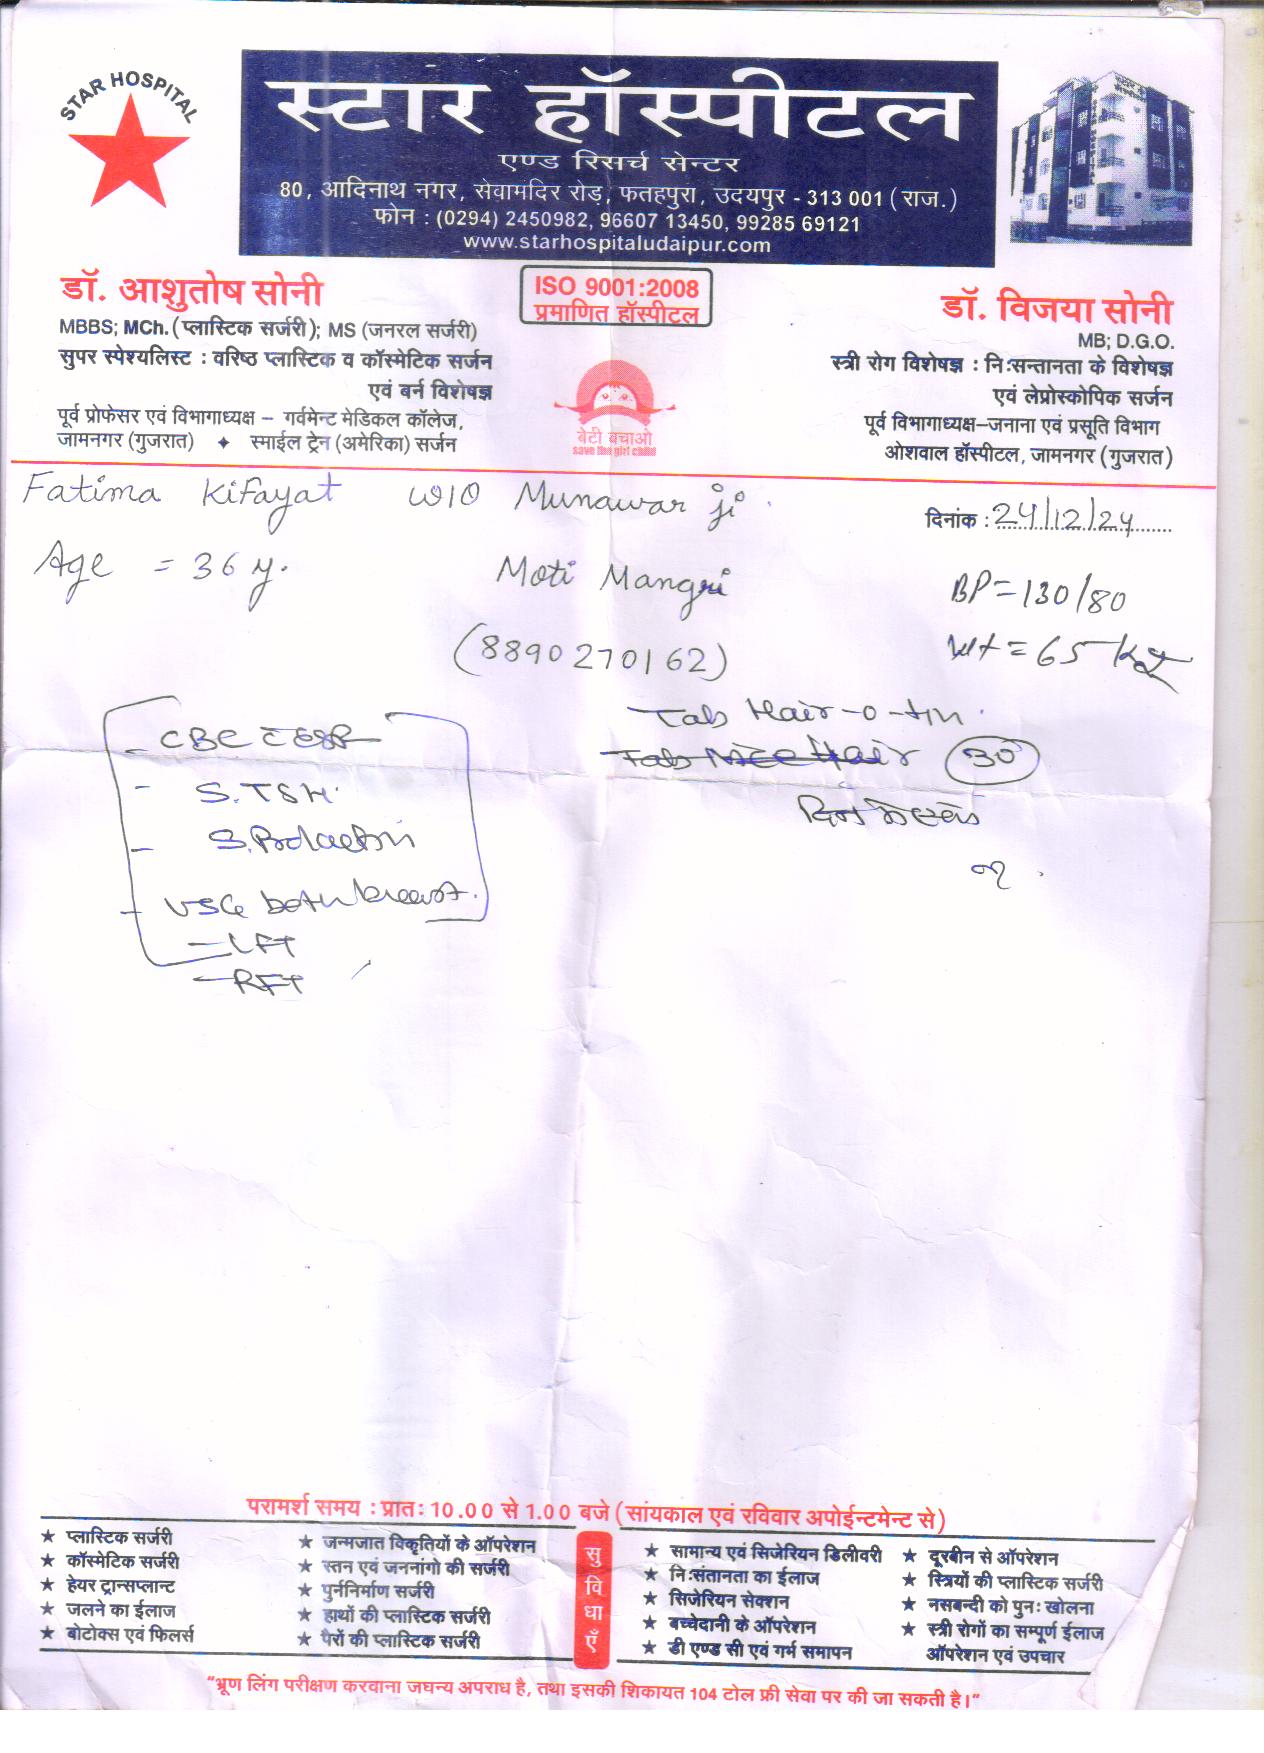 STAR HOSPITAL
स्टार हॉस्पीटल
एण्ड रिसर्च सेन्टर
80, आदिनाथ नगर, सेवामदिर रोड़, फतहपुरा, उदयपुर - 313 001 (राज.)
फोन : (0294) 2450982, 96607 13450, 99285 69121
www.starhospitaludaipur.com
ISO 9001:2008
प्रमाणित हॉस्पीटल
डॉ. आशुतोष सोनी
MBBS; MCh. (प्लास्टिक सर्जरी); MS (जनरल सर्जरी)
सुपर स्पेश्यलिस्ट : वरिष्ठ प्लास्टिक व कॉस्मेटिक सर्जन
एवं बर्न विशेषज्ञ
पूर्व प्रोफेसर एवं विभागाध्यक्ष – गर्वमेन्ट मेडिकल कॉलेज,
जामनगर (गुजरात) ✦ स्माईल ट्रेन (अमेरिका) सर्जन
बेटी बचाओ
save the girl child
डॉ. विजया सोनी
MB; D.G.O.
स्त्री रोग विशेषज्ञ : निःसन्तानता के विशेषज्ञ
एवं लेप्रोस्कोपिक सर्जन
पूर्व विभागाध्यक्ष–जनाना एवं प्रसूति विभाग
ओशवाल हॉस्पीटल, जामनगर (गुजरात)
Fatima Kifayat W/O Munawar ji.
दिनांक : 24/12/24
Age = 36 y. Moti Mangri
BP = 130/80
(8890270162)
Wt = 65 Kg
Tab Hair-o-tin.
- CBC ESR
Tab Hair 30
- S. TSH.
- S. Prolactin
- USG both breast.
- LFT
- RFT
परामर्श समय : प्रातः 10.00 से 1.00 बजे (सांयकाल एवं रविवार अपोईन्टमेन्ट से)
सुविधाएँ
★ प्लास्टिक सर्जरी
★ कॉस्मेटिक सर्जरी
★ हेयर ट्रान्सप्लान्ट
★ जलने का ईलाज
★ बोटोक्स एवं फिलर्स
★ जन्मजात विकृतियों के ऑपरेशन
★ स्तन एवं जननांगो की सर्जरी
★ पुर्ननिर्माण सर्जरी
★ हाथों की प्लास्टिक सर्जरी
★ पैरों की प्लास्टिक सर्जरी
★ सामान्य एवं सिजेरियन डिलीवरी
★ निःसंतानता का ईलाज
★ सिजेरियन सेक्शन
★ बच्चेदानी के ऑपरेशन
★ डी एण्ड सी एवं गर्भ समापन
★ दूरबीन से ऑपरेशन
★ स्त्रियों की प्लास्टिक सर्जरी
★ नसबन्दी को पुनः खोलना
★ स्त्री रोगों का सम्पूर्ण ईलाज
ऑपरेशन एवं उपचार
"भ्रूण लिंग परीक्षण करवाना जघन्य अपराध है, तथा इसकी शिकायत 104 टोल फ्री सेवा पर की जा सकती है।"